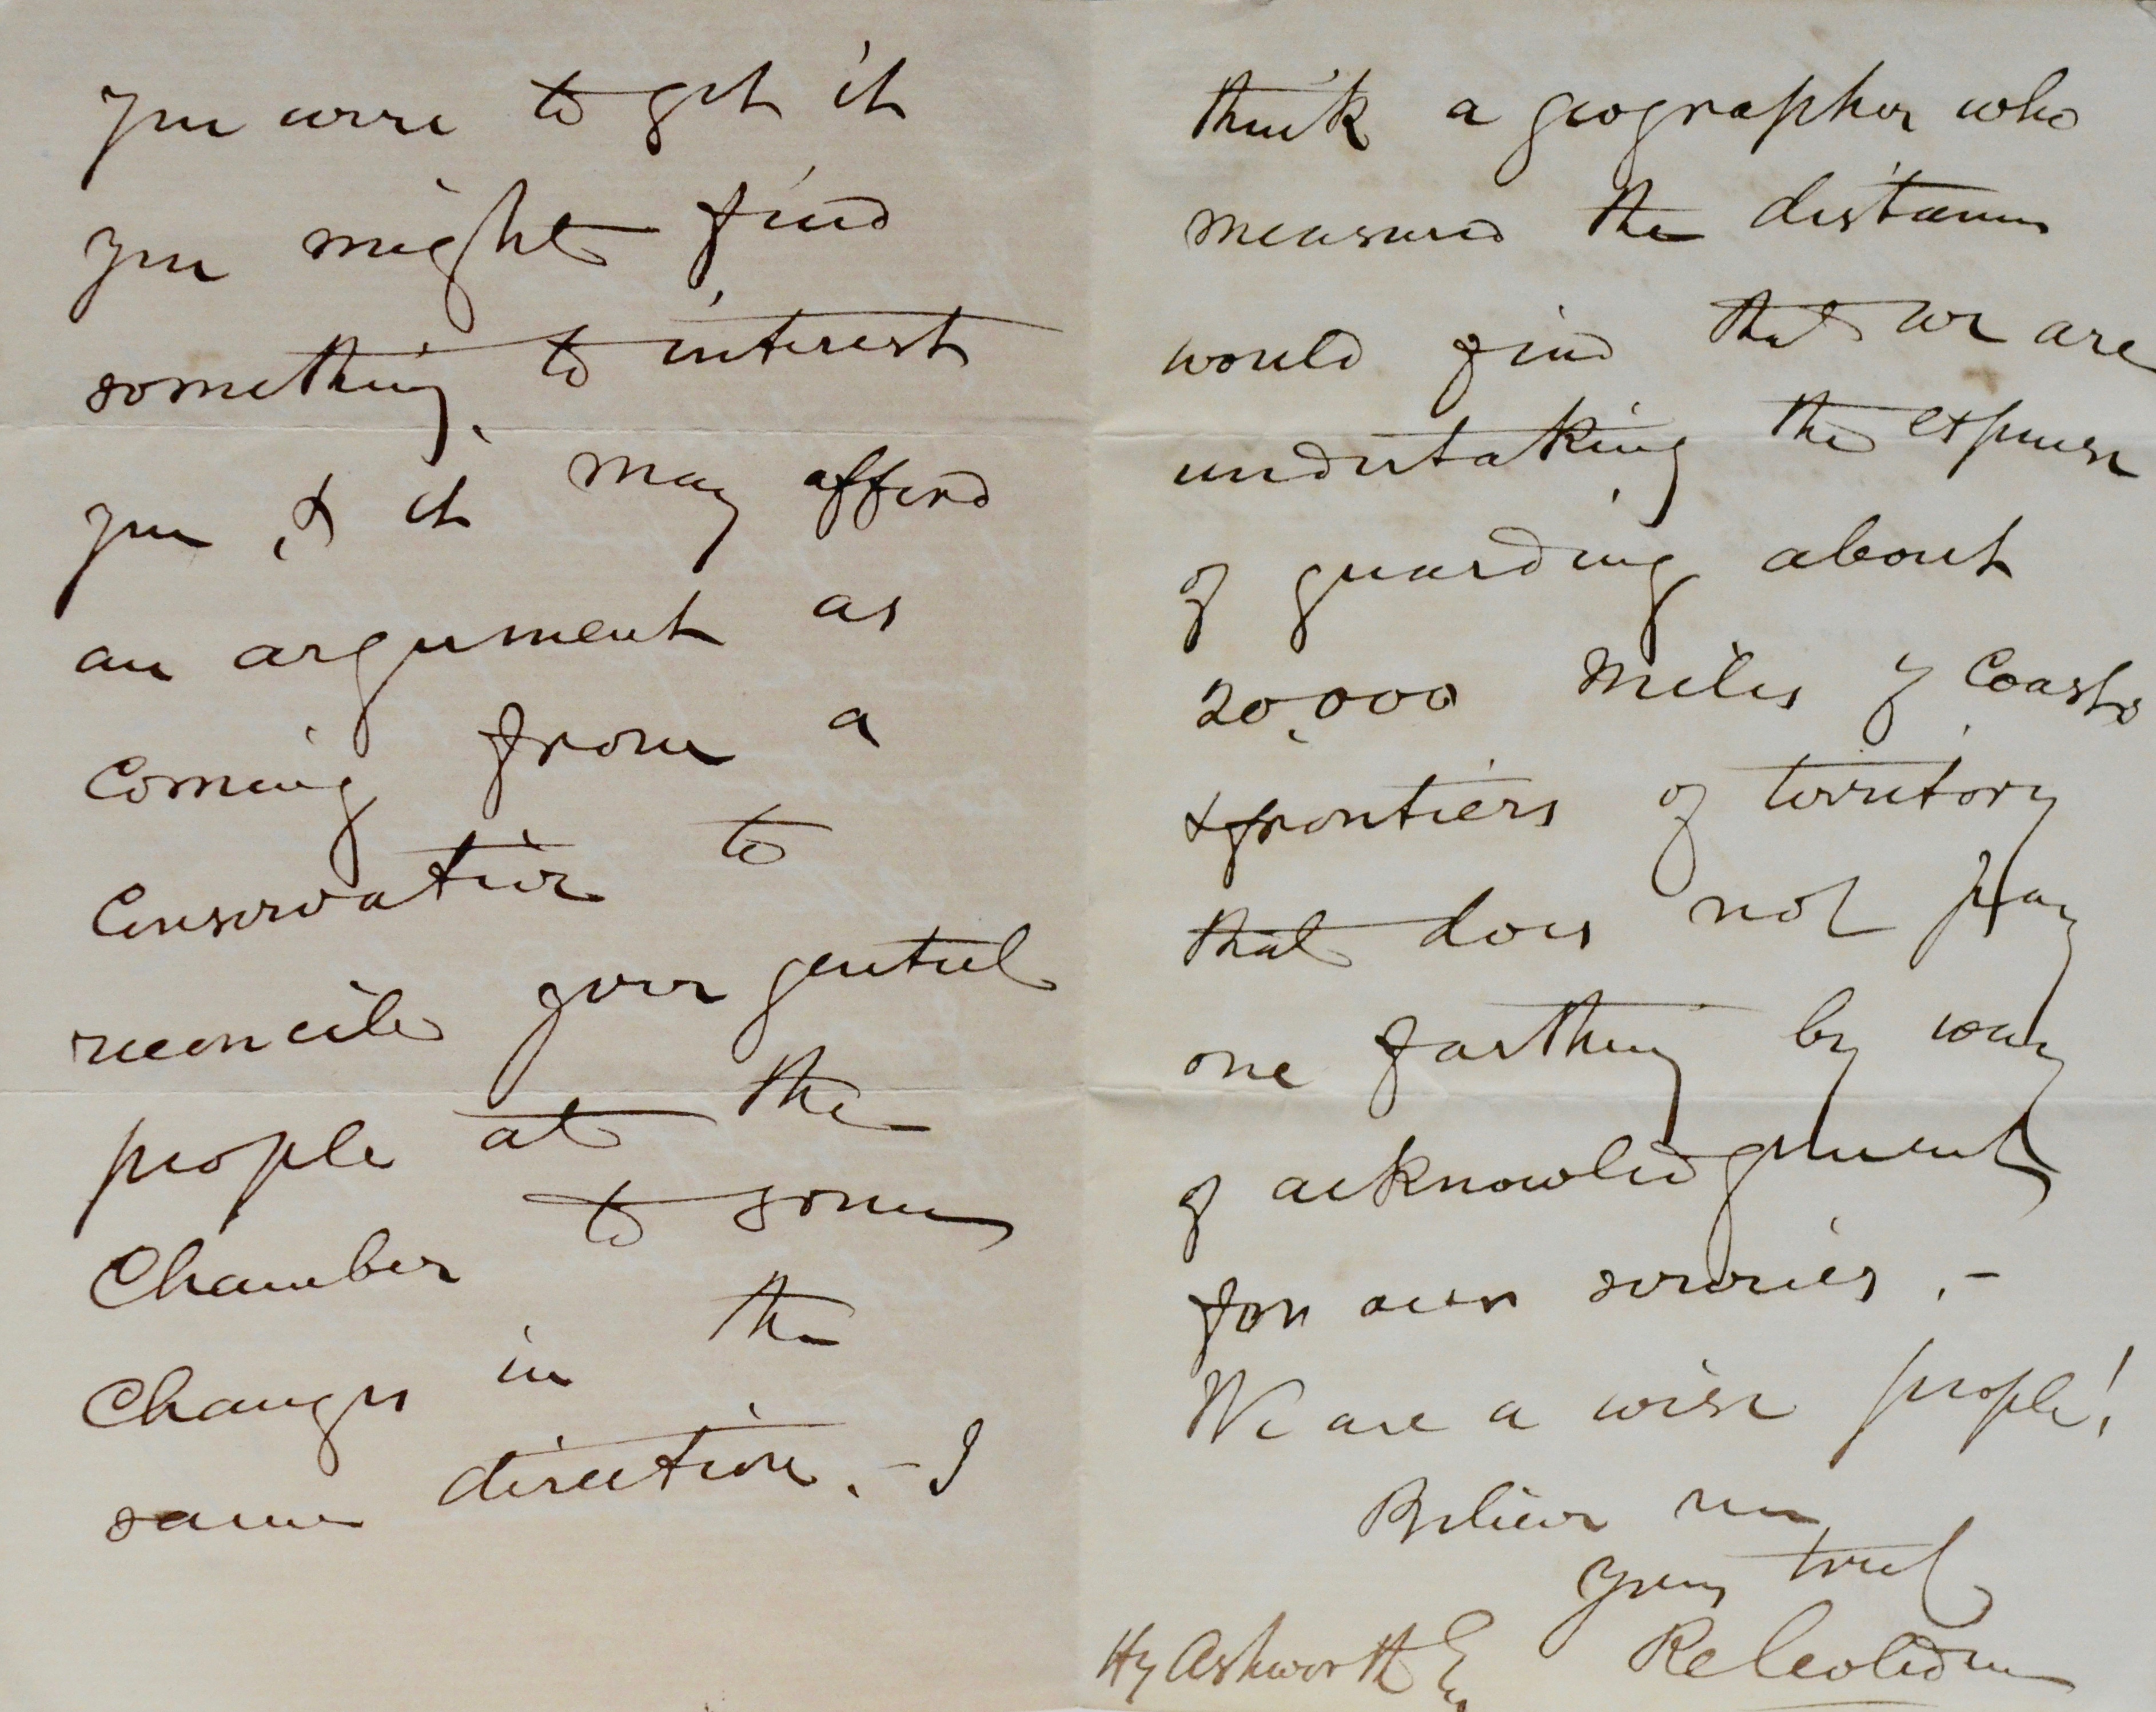 you were to get it
you might find
something to interest
you, & it may afford
an argument as
coming from a
Conservative to
reconcile your genteel
people at the
Chamber to some
changes in the
same direction. – I
think a geographer who
measured the distances
would find that we are
undertaking the expense
of guarding about
20,000 miles of Coasts
& frontiers of territory
that does not pay
one farthing by way
of acknowledgment
for our services. –
We are a wise people!
Believe me
yours truly
R Cobden
Hy Ashworth Esq